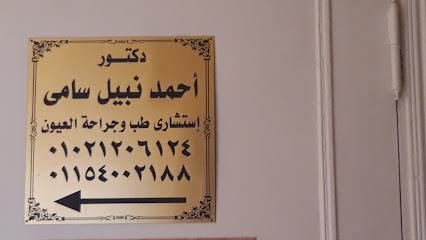 دكتـــور
أحمد نبيل سامى
إستشارى طب وجراحة العيون
٠١٠٢١٢٠٦١٢٤
٠١١٥٤٠٠٢١٨٨